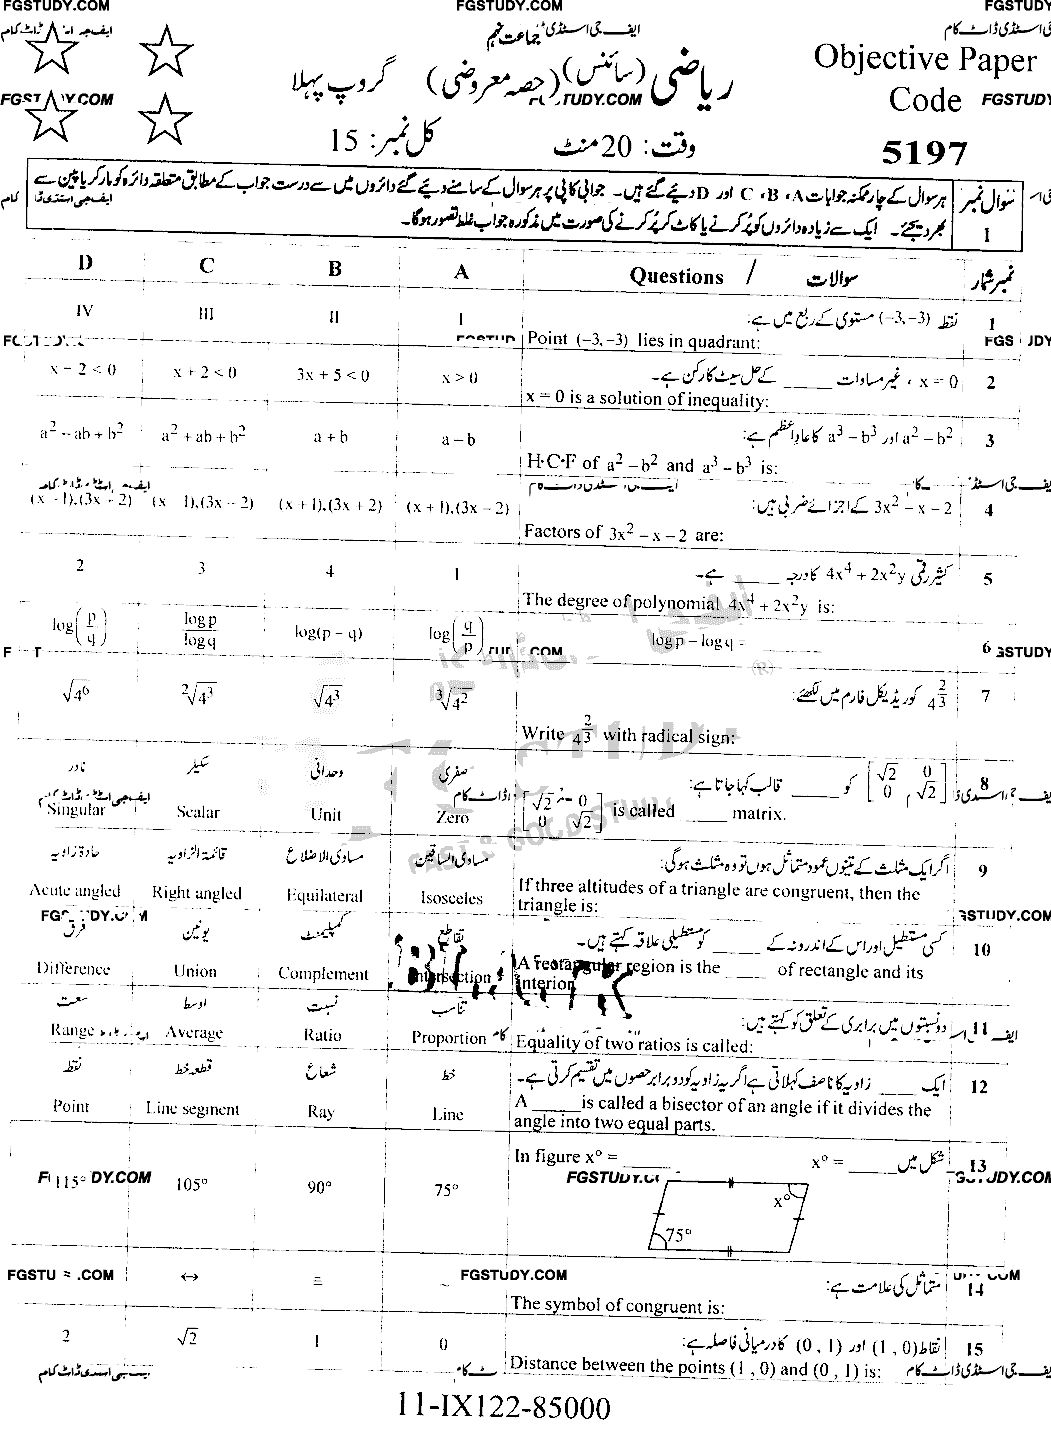 FGSTUDY.COM FGSTUDY.COM FGSTUDY
ایف جی اسٹڈی ڈاٹ کام
جماعت نہم
ریاضی (سائنس) (حصہ معروضی) گروپ پہلا
Objective Paper
Code
5197
وقت: 20 منٹ کل نمبر: 15
سوال نمبر 1
ہر سوال کے چار ممکنہ جوابات A، B، C اور D دیئے گئے ہیں۔ جوابی کاپی پر ہر سوال کے سامنے دیئے گئے دائروں میں سے درست جواب کے مطابق متعلقہ دائرہ کو مارکر یا پین سے
بھر دیجئے۔ ایک سے زیادہ دائروں کو پُر کرنے یا کاٹ کر پُر کرنے کی صورت میں مذکورہ جواب غلط تصور ہوگا۔
D C B A Questions / سوالات نمبر شمار
IV III II I نقطہ (-3,-3) مستوی کے ربع میں ہے: 1
Point (-3,-3) lies in quadrant:
x - 2 < 0 x + 2 < 0 3x + 5 < 0 x > 0 x = 0 ، غیر مساوات ____ کے حل سیٹ کا رکن ہے۔ 2
x = 0 is a solution of inequality:
a² - ab + b² a² + ab + b² a + b a - b a² - b² اور a³ - b³ کا عاد اعظم ہے: 3
H·C·F of a² - b² and a³ - b³ is:
(x - 1),(3x + 2) (x - 1),(3x - 2) (x + 1),(3x + 2) (x + 1),(3x - 2) 3x² - x - 2 کے اجزائے ضربی ہیں: 4
Factors of 3x² - x - 2 are:
2 3 4 1 کثیر رقمی 4x⁴ + 2x²y کا درجہ ____ ہے۔ 5
The degree of polynomial 4x⁴ + 2x²y is:
log(p/q) log p/log q log(p - q) log(q/p) log p - log q = ____ 6
√4⁶ ²√4³ √4³ ³√4² 4^(2/3) کو ریڈیکل فارم میں لکھئے: 7
Write 4^(2/3) with radical sign:
نادر سکیلر وحدانی صفری [√2 0 0 √2] کو ____ قالب کہا جاتا ہے: 8
Singular Scalar Unit Zero [√2 0 0 √2] is called ____ matrix.
حادۃ زاویہ قائمۃ الزاویہ مساوی الاضلاع مساوی الساقین اگر ایک مثلث کے تینوں عمود متماثل ہوں تو وہ مثلث ہوگی: 9
Acute angled Right angled Equilateral Isosceles If three altitudes of a triangle are congruent, then the
triangle is:
فرق یونین کمپلیمنٹ تقاطع کسی مستطیل اور اس کے اندرونہ کے ____ کو مستطیلی علاقہ کہتے ہیں۔ 10
Difference Union Complement Intersection A rectangular region is the ____ of rectangle and its
interior
سعت اوسط نسبت تناسب دو نسبتوں میں برابری کے تعلق کو کہتے ہیں: 11
Range Average Ratio Proportion Equality of two ratios is called:
نقطہ قطعہ خط شعاع خط ایک ____ زاویہ کا ناصف کہلاتی ہے اگر یہ زاویہ کو دو برابر حصوں میں تقسیم کرتی ہے۔ 12
Point Line segment Ray Line A ____ is called a bisector of an angle if it divides the
angle into two equal parts.
In figure x° = ____ شکل میں ____ = x° 13
115° 105° 90° 75°
x°
75°
FGSTUDY.COM
↔ = متماثل کی علامت ہے: 14
The symbol of congruent is:
2 √2 1 0 نقاط (1 , 0) اور (0 , 1) کا درمیانی فاصلہ ہے: 15
Distance between the points (1 , 0) and (0 , 1) is:
11-IX122-85000